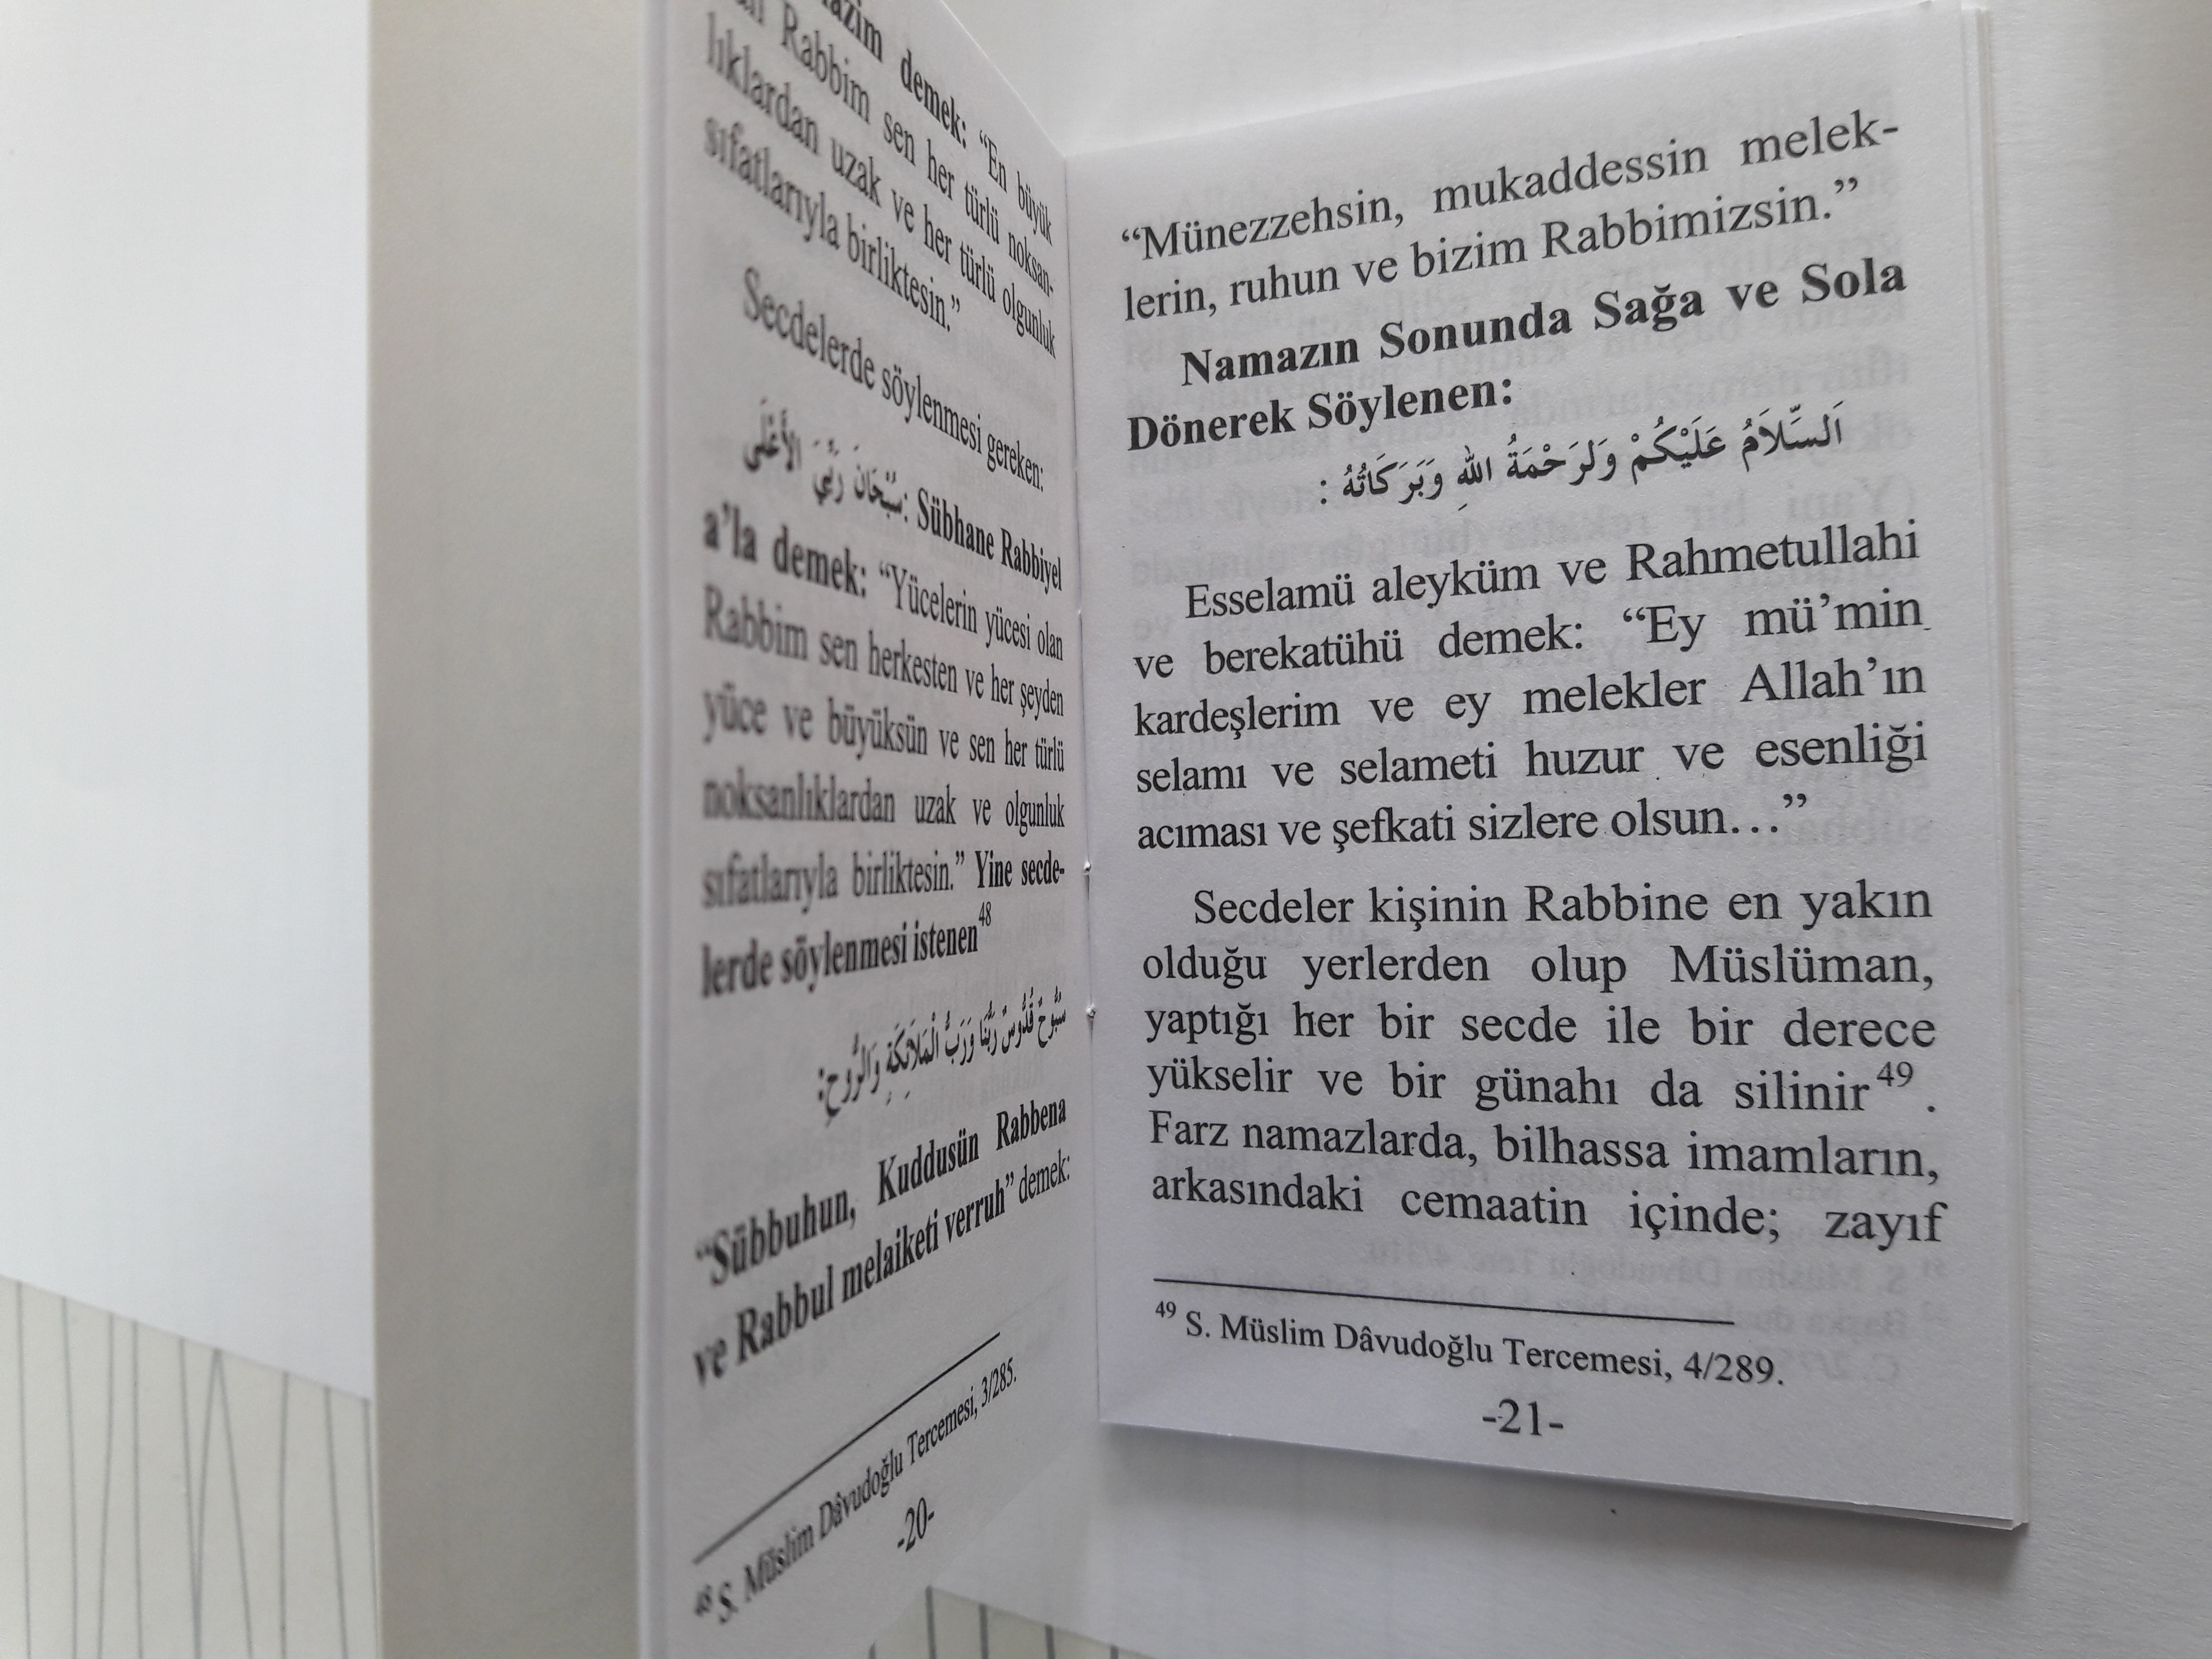 demek: “En büyük
Rabbim sen her türlü noksan-
lıklardan uzak ve her türlü olgunluk
sıfatlarıyla birliktesin.”
Secdelerde söylenmesi gereken:
سُبْحَانَ رَبِّيَ الأَعْلَى: Sübhane Rabbiyel
a’la demek: “Yücelerin yücesi olan
Rabbim sen herkesten ve her şeyden
yüce ve büyüksün ve sen her türlü
noksanlıklardan uzak ve olgunluk
sıfatlarıyla birliktesin.” Yine secde-
lerde söylenmesi istenen48
سُبُّوحٌ قُدُّوسٌ رَبُّنَا وَرَبُّ الْمَلاَئِكَةِ وَالرُّوحِ:
“Sübbuhun, Kuddusün Rabbena
ve Rabbul melaiketi verruh” demek:
48 S. Müslim Dâvudoğlu Tercemesi, 3/285.
-20-
“Münezzehsin, mukaddessin melek-
lerin, ruhun ve bizim Rabbimizsin.”
Namazın Sonunda Sağa ve Sola
Dönerek Söylenen:
اَلسَّلاَمُ عَلَيْكُمْ وَلرَحْمَةُ اللهِ وَبَرَكَاتُهُ :
Esselamü aleyküm ve Rahmetullahi
ve berekatühü demek: “Ey mü’min
kardeşlerim ve ey melekler Allah’ın
selamı ve selameti huzur ve esenliği
acıması ve şefkati sizlere olsun…”
Secdeler kişinin Rabbine en yakın
olduğu yerlerden olup Müslüman,
yaptığı her bir secde ile bir derece
yükselir ve bir günahı da silinir49 .
Farz namazlarda, bilhassa imamların,
arkasındaki cemaatin içinde; zayıf
49 S. Müslim Dâvudoğlu Tercemesi, 4/289.
-21-